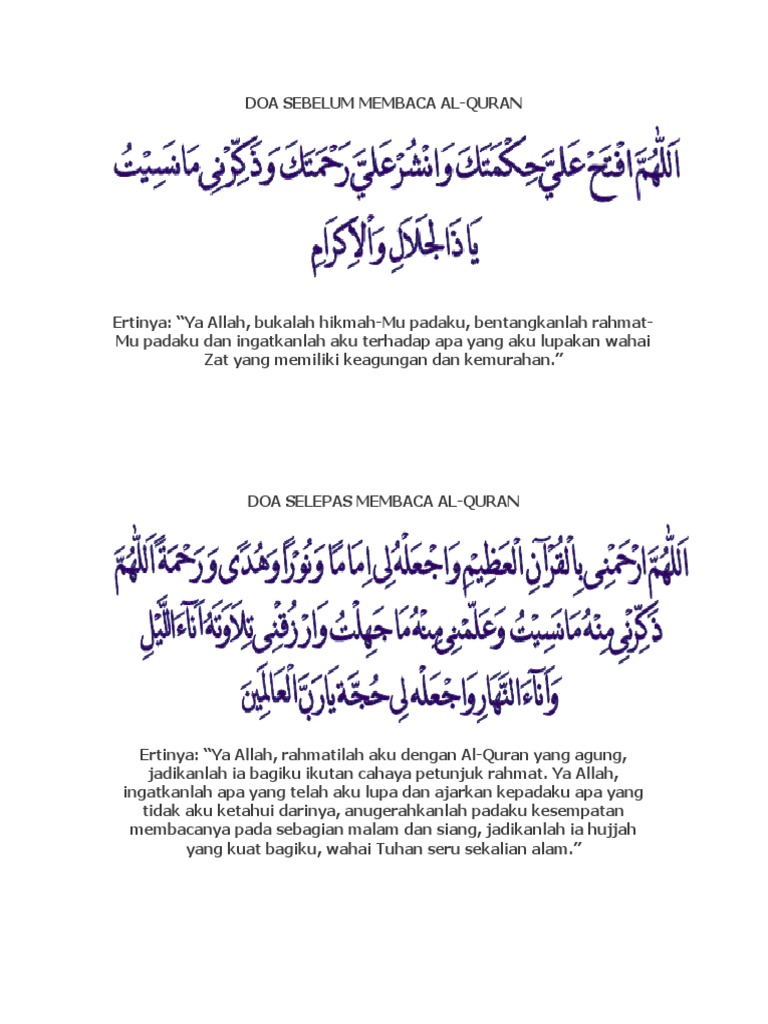 DOA SEBELUM MEMBACA AL-QURAN
اَللّٰهُمَّ افْتَحْ عَلَيَّ حِكْمَتَكَ وَانْشُرْ عَلَيَّ رَحْمَتَكَ وَذَكِّرْنِي مَانَسِيْتُ
يَا ذَالْجَلَالِ وَاْلاِكْرَامِ
Ertinya: “Ya Allah, bukalah hikmah-Mu padaku, bentangkanlah rahmat-
Mu padaku dan ingatkanlah aku terhadap apa yang aku lupakan wahai
Zat yang memiliki keagungan dan kemurahan.”
DOA SELEPAS MEMBACA AL-QURAN
اَللّٰهُمَّ ارْحَمْنِى بِالْقُرْآنِ الْعَظِيْمِ وَاجْعَلْهُ لِى اِمَامًا وَنُوْرًا وَهُدًى وَرَحْمَةً اَللّٰهُمَّ
ذَكِّرْنِي مِنْهُ مَانَسِيْتُ وَعَلِّمْنِى مِنْهُ مَا جَهِلْتُ وَارْزُقْنِى تِلَاوَتَهُ اَنَآءَ اللَّيْلِ
وَاَنَآءَ النَّهَارِ وَاجْعَلْهُ لِي حُجَّةً يَارَبَّ الْعَالَمِيْنَ
Ertinya: “Ya Allah, rahmatilah aku dengan Al-Quran yang agung,
jadikanlah ia bagiku ikutan cahaya petunjuk rahmat. Ya Allah,
ingatkanlah apa yang telah aku lupa dan ajarkan kepadaku apa yang
tidak aku ketahui darinya, anugerahkanlah padaku kesempatan
membacanya pada sebagian malam dan siang, jadikanlah ia hujjah
yang kuat bagiku, wahai Tuhan seru sekalian alam.”